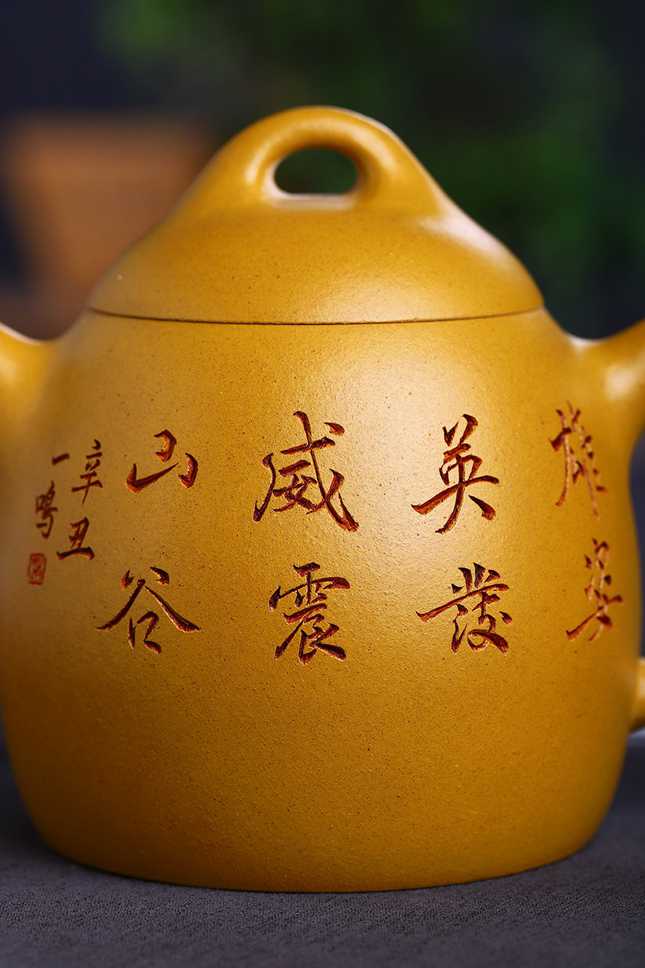 雄姿
英發
威震
山谷
辛丑
一鳴